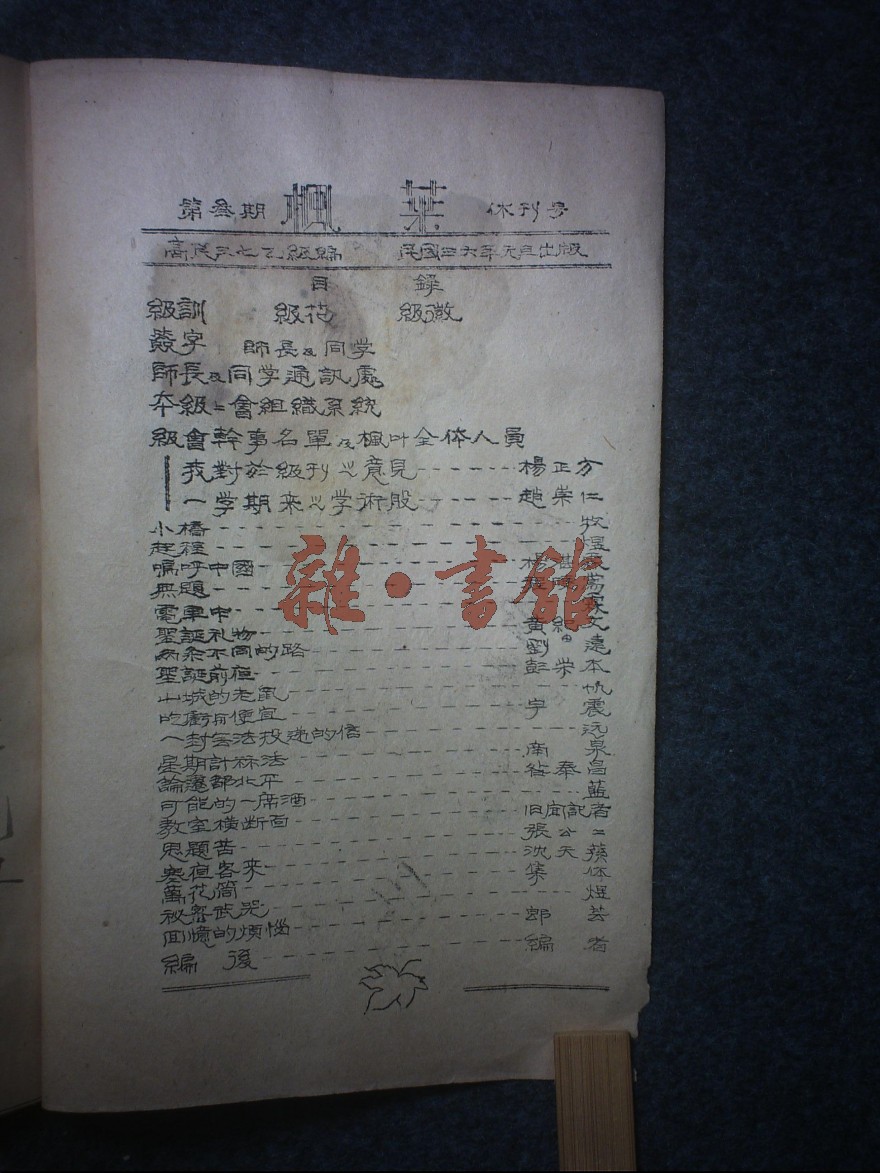 第叁期 楓葉 休刊号
高农三七乙級編 民國三六年元旦出版
目錄
級訓 級花 級徽
簽字 師長及同学
師長及同学通訊處
本級二會組織系統
級會幹事名單及楓叶全体人員
我對於級刊之意見 楊正方
一学期来之学術股 趙崇仁
小橋 牧
起程 煜
嗚呼中國 楊
無題
電車中
聖誕礼物 黄紹文
兩条不同的路 劉 遠
聖誕前夜 彭荣本
山城的老鼠 帆
吃虧与便宜 宇震
一封无法投递的信 远
星期計祘法 南泉
論遷都北平 昌
可能的一席酒 藍
教室橫断面 旧聞記者
思題苦 張公
寒夜客来 沈天蓀
萬花筒 集体
祕密武器 煜
回憶的煩惱 郎芸
編後 編者
雜·書館